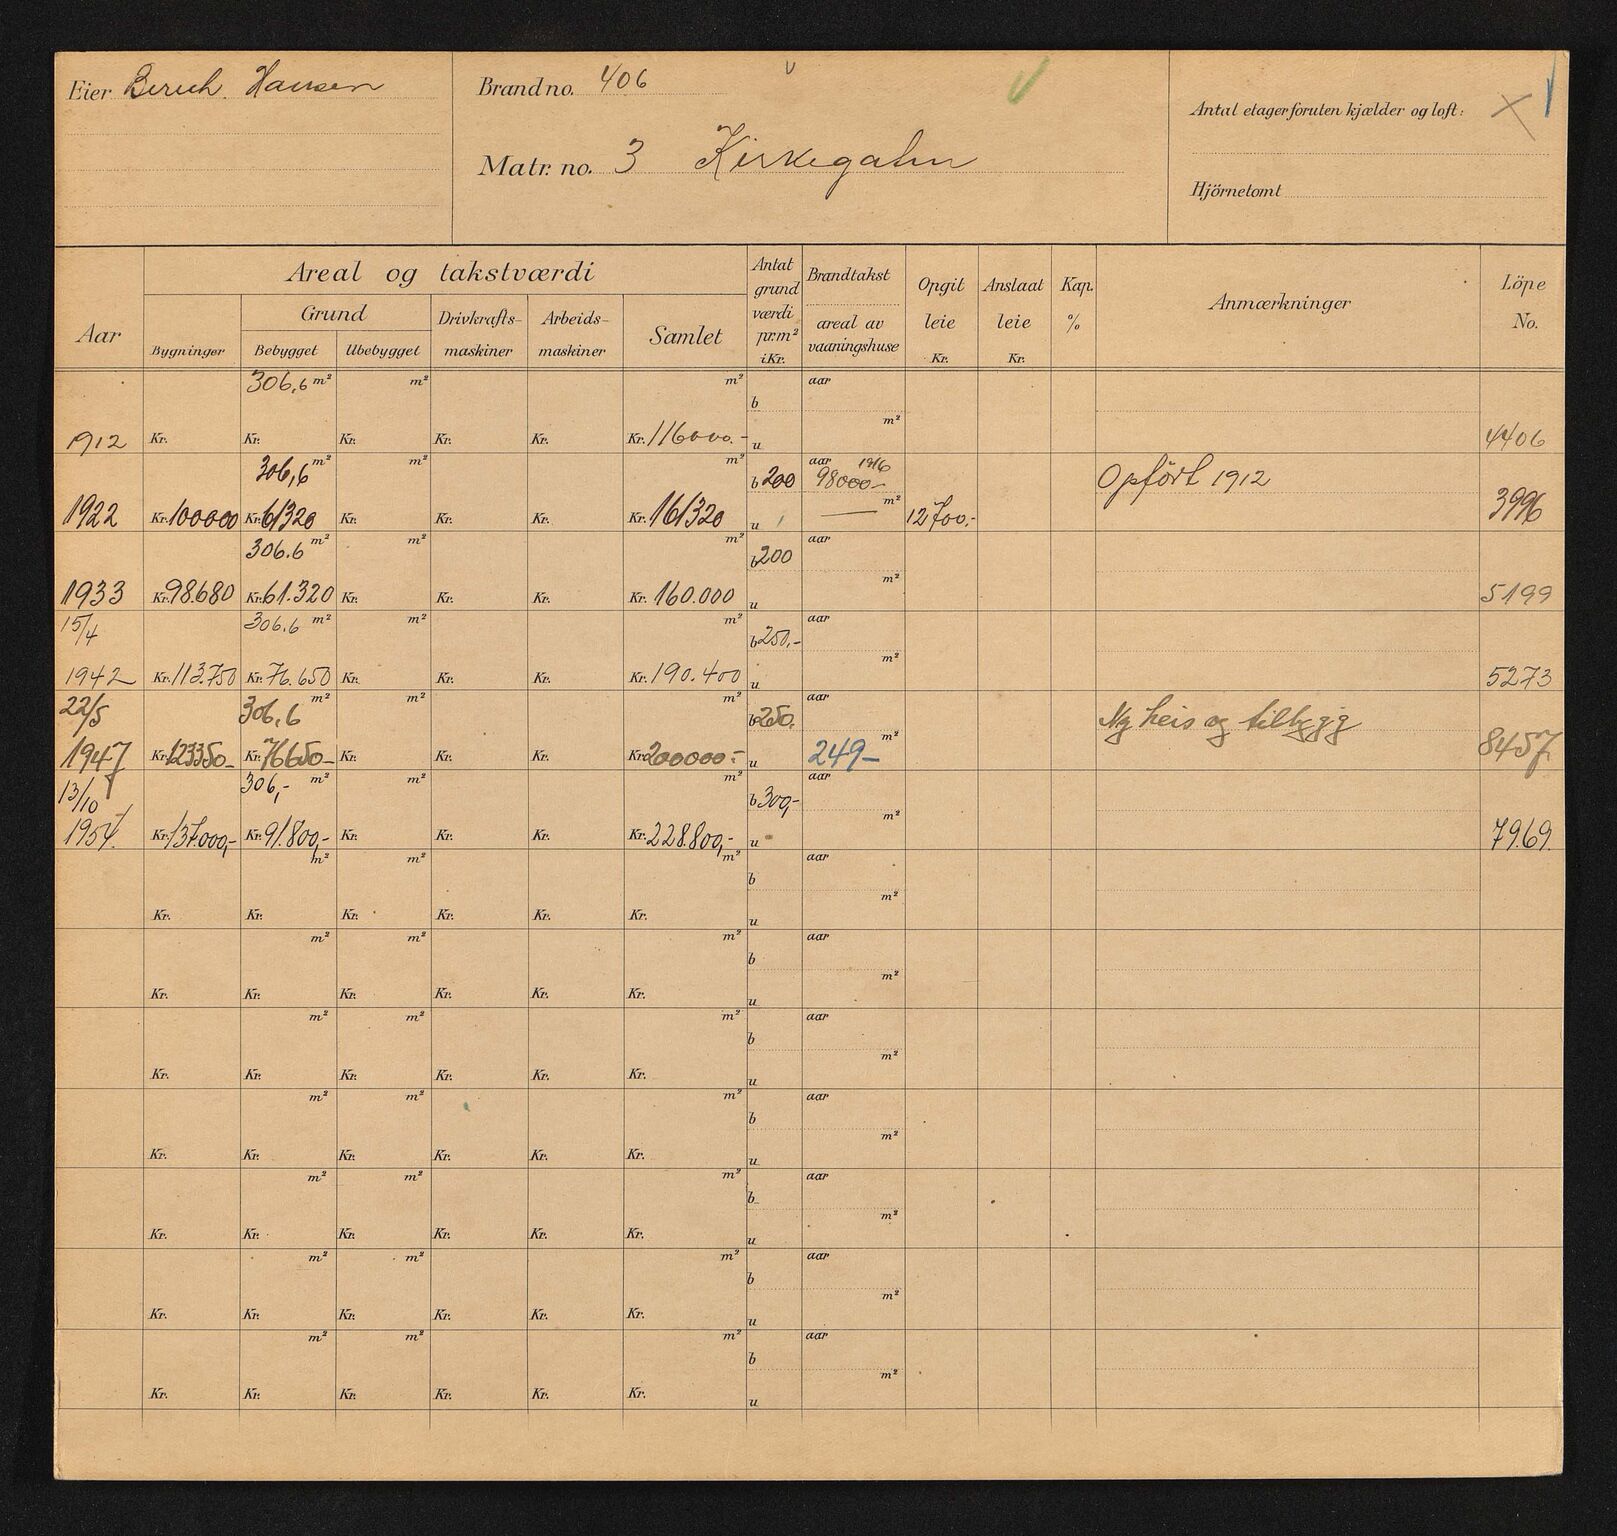 Eier Berieh. Hansen
Brand no. 406
Matr. no. 3 Kirkegaten
Antal etager foruten kjælder og loft:
Hjörnetomt
Areal og takstværdi
Aar
Bygninger
Grund
Bebygget Ubebygget
Drivkrafts-
maskiner
Arbeids-
maskiner
Samlet
Antat
grund
værdi
pr.m²
i Kr.
Brandtakst
areal av
vaaningshuse
Opgit
leie
Kr.
Anslaat
leie
Kr.
Kap.
%
Anmærkninger
Löpe
No.
306,6 m² m² m² b aar
m²
1912 Kr. Kr. Kr. Kr. Kr. Kr. 116000.- u 4406
306,6 m² m² m² b 200 aar 1916
98000- Opført 1912
m²
1922 Kr. 100000 Kr. 61320 Kr. Kr. Kr. Kr. 161320 u 12700.- 3996
306.6 m² m² m² b 200 aar
m²
1933 Kr. 98.680 Kr. 61.320 Kr. Kr. Kr. Kr. 160.000 u 5199
15/4 306.6 m² m² m² b 250.- aar
m²
1942 Kr. 113.750 Kr. 76.650 Kr. Kr. Kr. Kr. 190.400 u 5273
22/5 306.6 m² m² m² b 250. aar Ny heis og tilbygg
m²
1947 Kr. 123350- Kr. 76650- Kr. Kr. Kr. Kr. 200000.- u 249- 8457
13/10 306,- m² m² m² b 300,- aar
m²
1954. Kr. 137.000,- Kr. 91.800,- Kr. Kr. Kr. Kr. 228.800,- u 7969.
m² m² m² b aar
m²
Kr. Kr. Kr. Kr. Kr. Kr. u
m² m² m² b aar
m²
Kr. Kr. Kr. Kr. Kr. Kr. u
m² m² m² b aar
m²
Kr. Kr. Kr. Kr. Kr. Kr. u
m² m² m² b aar
m²
Kr. Kr. Kr. Kr. Kr. Kr. u
m² m² m² b aar
m²
Kr. Kr. Kr. Kr. Kr. Kr. u
m² m² m² b aar
m²
Kr. Kr. Kr. Kr. Kr. Kr. u
m² m² m² b aar
m²
Kr. Kr. Kr. Kr. Kr. Kr. u